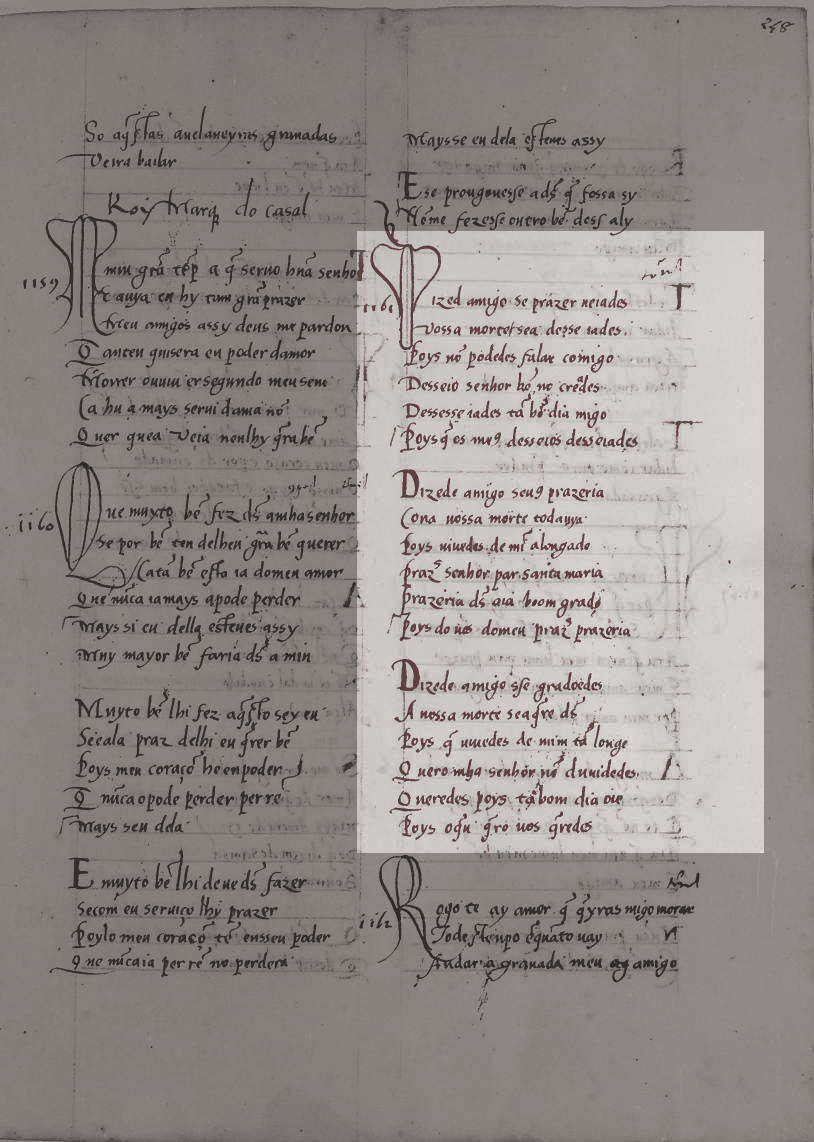 248
So aq̃stas auelaneyras granadas
Veira bailar
Roy Marq̃ do casal
1159
A mui grã tẽp a q̃ seruo hũa senhor
E auya en hy tam grã prazer
Meu amigos assy deus me pardon
Q tanteu guisera eu poder damor
Morrer ouuiu ersegundo meu sem
Ca hu a mays serui dama nõ
Quer quea veia nenlhy grã bẽ
1160
Que muyto bẽ fez dš amha senhor
Se por bẽ ten delheu grã bẽ querer
Cata bẽ esto ia domeu amor
Que nũca iamays apode perder
Mays si eu della esteues assy
Muy mayor bẽ faria dš a min
Muyto bẽ lhi fez aq̃sto sey eu
Seeala praz delhi eu q̃rer bẽ
Poys meu coraçõ he en poder
Q nũca o pode perder per rẽ
Mays seu dela
E muyto bẽ lhi deue dš fazer
Secom eu seruiço lhy prazer
Poylo meu coraçõ tẽ en sseu poder
Que nũca ia per rẽ no perdera
Maysse eu dela esteues assy
E se prougouesse a dš q̃ fossa sy
Nome fezesse outro bẽ dess aly
1161
Dized amigo se prazer ueiades
Vossa morte sea desse iades
Poys nõ podedes falar comigo
Desseio senhor bõ no credes
Dessesse iades tã bõ dia migo
Poys q̃ os me9 desseios desseiades
Dizede amigo seu9 prazeria
Cona uossa morte todauya
Poys uiuedes de mi alongado
Praz senhor par santa maria
Prazeria dš aia boom grado
Poys do uos domeu praz prazeria
Dizede amigo sse gradoedes
A uossa morte sea q̃re dš
Poys q̃ uiuedes de mim tã longe
Quero mha senhor nõ duuidedes
Queredes poys tã bom dia oie
Poys oq̃u q̃ro uos q̃redes
1162
Rogo te ay amor q̃ q̃yras migo morar
Tode stenpo ẽquãto uay
Andar a granada meu ay amigo